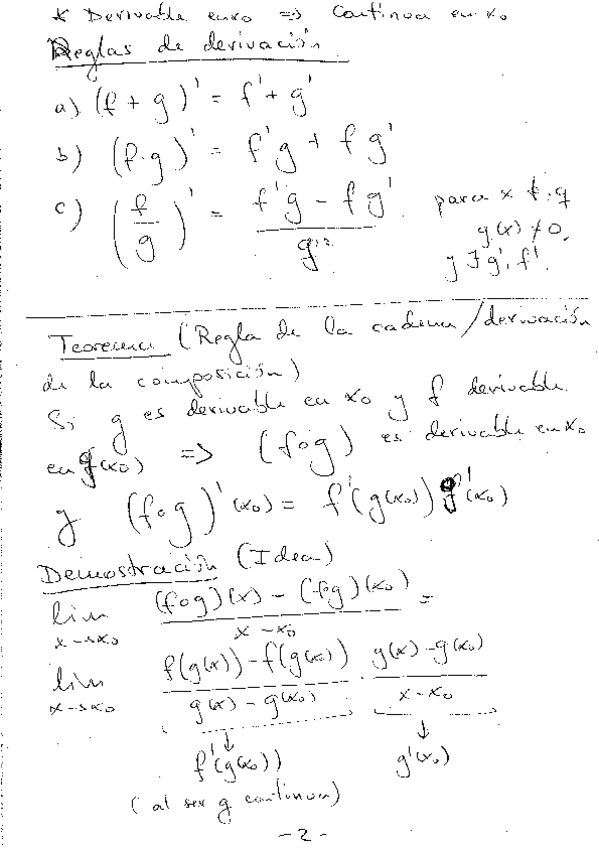 * Derivable en x₀ => Continua en x₀
Reglas de derivación
a) (f + g)' = f' + g'
b) (f·g)' = f'g + f g'
c) (f/g)' = (f'g - f g')/g² para x t.q
g(x) ≠ 0,
y ∃ g', f'.
Teorema (Regla de la cadena/derivación
de la composición)
Si g es derivable en x₀ y f derivable
en g(x₀) => (f∘g) es derivable en x₀
y (f∘g)'(x₀) = f'(g(x₀)) g'(x₀)
Demostración (Idea)
lim x→x₀ ((f∘g)(x) - (f∘g)(x₀))/(x - x₀) =
lim x→x₀ (f(g(x)) - f(g(x₀)))/(g(x) - g(x₀)) · (g(x) - g(x₀))/(x - x₀)
↓ ↓
f'(g(x₀)) g'(x₀)
(al ser g continua)
- 2 -